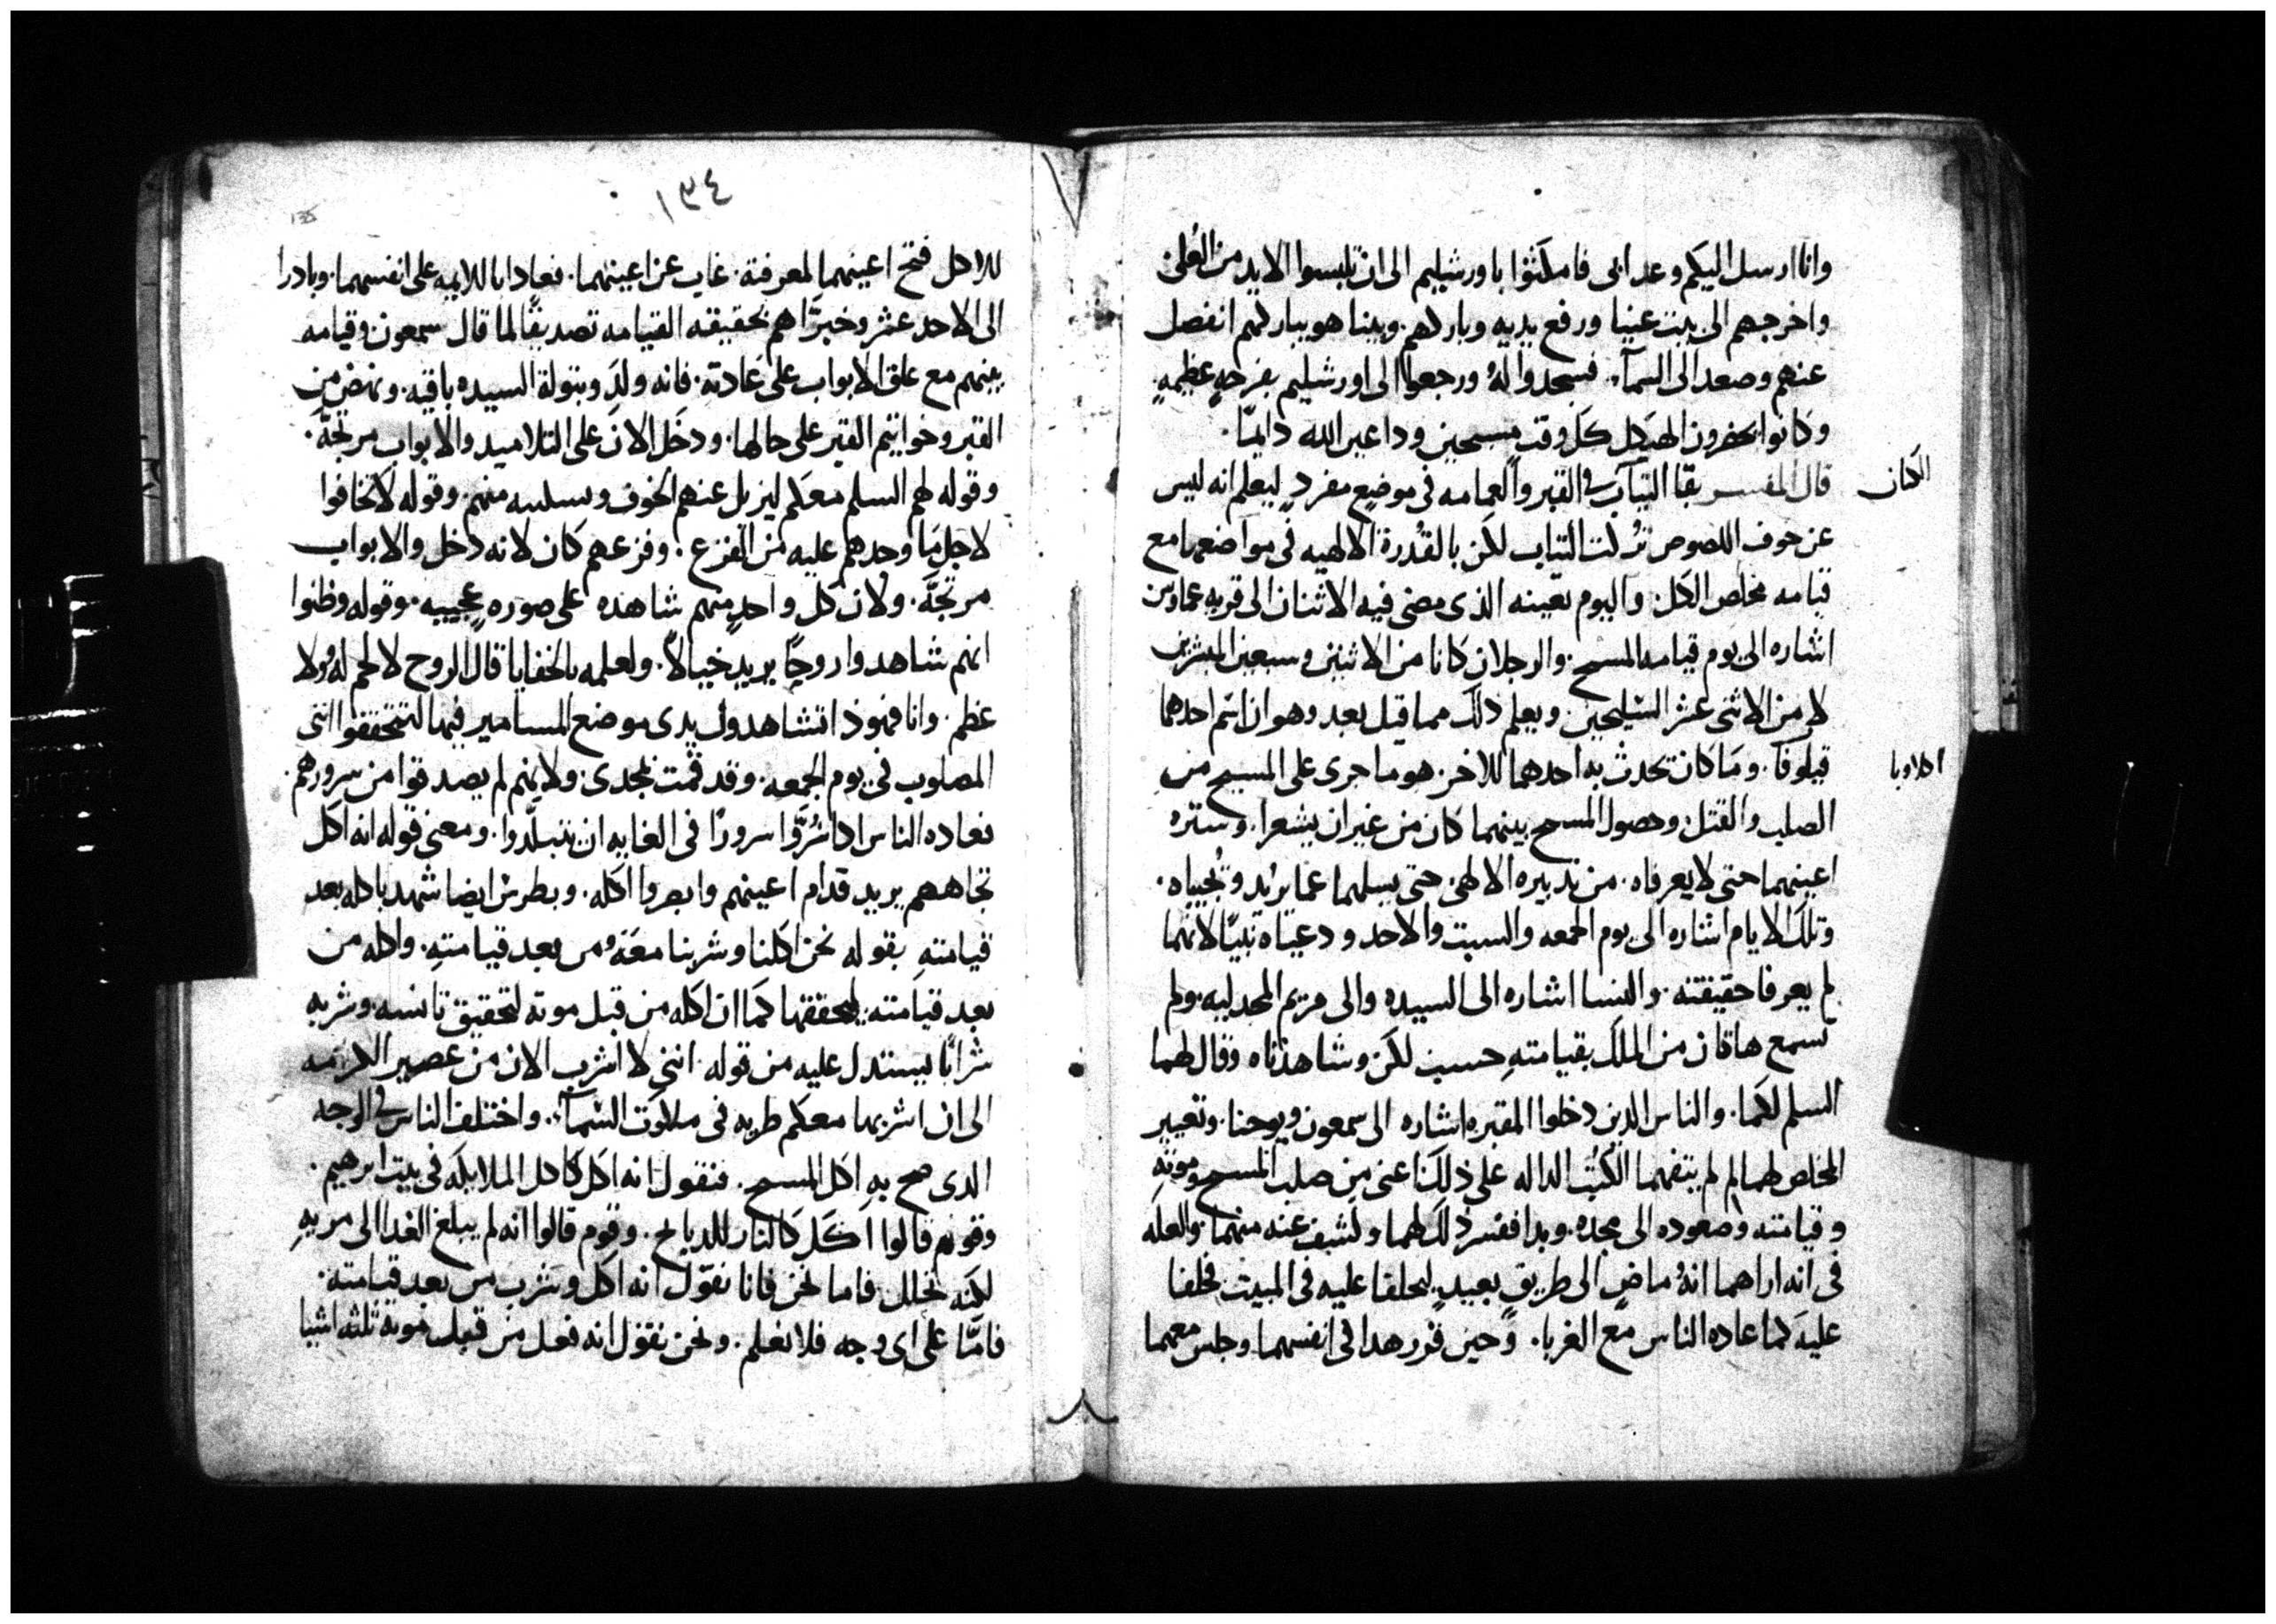 وانا ارسل اليكم وعد ابى فامكثوا باورشليم الى ان تلبسوا الايد من العُلىٰ
واخرجهم الى بيت عنيا ورفع يديه وباركهم. وبينا هو يباركهم انفصل
عنهم وصعد الى السمآء. فسجدوا لهُ ورجعوا الى اورشليم بفرحهٍ عظيمهٍ
وكانوا يحضرون الهيكل كل وقتٍ مسبحين وداعين الله دايمًا.
قال المفسر بقا الثياب فى القبر والعمامه فى موضعٍ مفردٍ ليعلم انه ليس
الكتان
عن خوف اللصوص تُركت الثياب لكن بالقُدرة الالهيه فى مواضعها مع
قيامه مخلص الكل. واليوم بعينه الذى مضى فيه الاثنان الى قريه عماوس
اشاره الى يوم قيامه المسيح. والرجلان كانا من الاثنين وسبعين المبشرين
لا من الاثنى عشر السليحين ويعلم ذلك مما قيل بعد وهو ان اسم احدهما
قيلوفا. وما كان تحدث به احدهما للاخر. هو ما جرى على المسيح من
اكلاوبا
الصلب والقتل. وحصول المسيح بينهما كان من غير ان يشعرا. وستره
اعينهما حتى لا يعرفاه. من تدبيره الالهى حتى يسلهما عما يريد وتُجيباه.
وتلك الايام اشاره الى يوم الجمعه والسبت والاحد ودعيتاه نبيًا لانهما
لم يعرفا حقيقته. والنسا اشاره الى السيده والى مريم المجدليه. ولم
تسمع هاتان من الملك بقيامتهِ حسب لكن وشاهدتاه وقال لهما
السلم لكما. والناس الذين دخلوا المقبره اشاره الى سمعون ويوحنا. وتعيير
المخلص لهما لِم لم يتفهما الكُتب الداله على ذلك. اعنى من صلب المسيح وموتهِ
وقيامته وصعوده الى مجده. وبدا ففسر ذلك لهما وكشف عنه منهما. والعله
فى انه اراهما انهُ ماضٍ الى طريقٍ بعيدٍ. ليحلفا عليه فى المبيت. فحلفا
عليه كما عاده الناس مع الغربا. وحين قرر هدا فى انفسهما وجلس معهما
١٣٤
135
للاكل فتح اعينهما لمعرفته. غاب عن اعينهما. فعادا باللايمه على انفسهما. وبادرا
الى الاحد عشر وخبرَّاهم بحقيقه القيامه تصديقًا لما قال سمعون وقيامه
بينهم مع غلق الابواب على عادته. فانه ولدَ وبتولة السيده باقيه. ونهض من
القبر وخواتيم القبر على حالها. ودخل الان على التلاميد والابواب مرتجَّه.
وقوله لهم السلم معكم ليزيل عنهم الخوف ويسلبه منهم. وقوله لا تخافوا
لاجل ما وجدهم عليه من الفزع. وفزعهم كان لانه دخل والابواب
مرتجَّه. ولان كل واحدٍ منهم شاهده على صورهٍ عجيبه. وقوله وظنوا
انهم شاهدوا روحًا يريد خيالاً. ولعلمه بالخفايا قال الروح لا لحم له ولا
عظم. وانا فهوذا تشاهدون يدى موضع المسامير فيها لتتحققوا اننى
المصلوب فى يوم الجمعه. وقد قمت بمجدى. ولانهم لم يصدقوا من سرورهم.
فعاده الناس اذا سُرُّوا سرورًا فى الغايه ان يتبلّدوا. ومعنى قوله انه اكل
تجاههم يريد قدام اعينهم وابصروا اكله. وبطرس ايضا شهد باكله بعد
قيامتهِ بقوله نحن اكلنا وشربنا معهُ من بعد قيامتهِ. واكله من
بعد قيامته ليحققها كما ان اكله من قبل موته لتحقيق تانسه. وشربه
شرابًا يستدل عليه من قوله. اننى لا اشرب الان من عصير الكرمه
الى ان اشربها معكم طريه فى ملكوت السمآء. واختلف الناس فى الوجه
الدى صح بهِ اكل المسيح. فنقول انه اكل كاكل الملايكه فى بيت ابرهيم.
وقوم قالوا اكل كالنار للدبايح. وقوم قالوا انه لم يبلغ الغدا الى مريهِ
لكنه تحلل. فاما نحن فانا نقول انه اكل وشرب من بعد قيامته.
فامَّا على اى وجه فلا نعلم. ونحن نقول انه فعل من قبل موته ثلثه اشيا